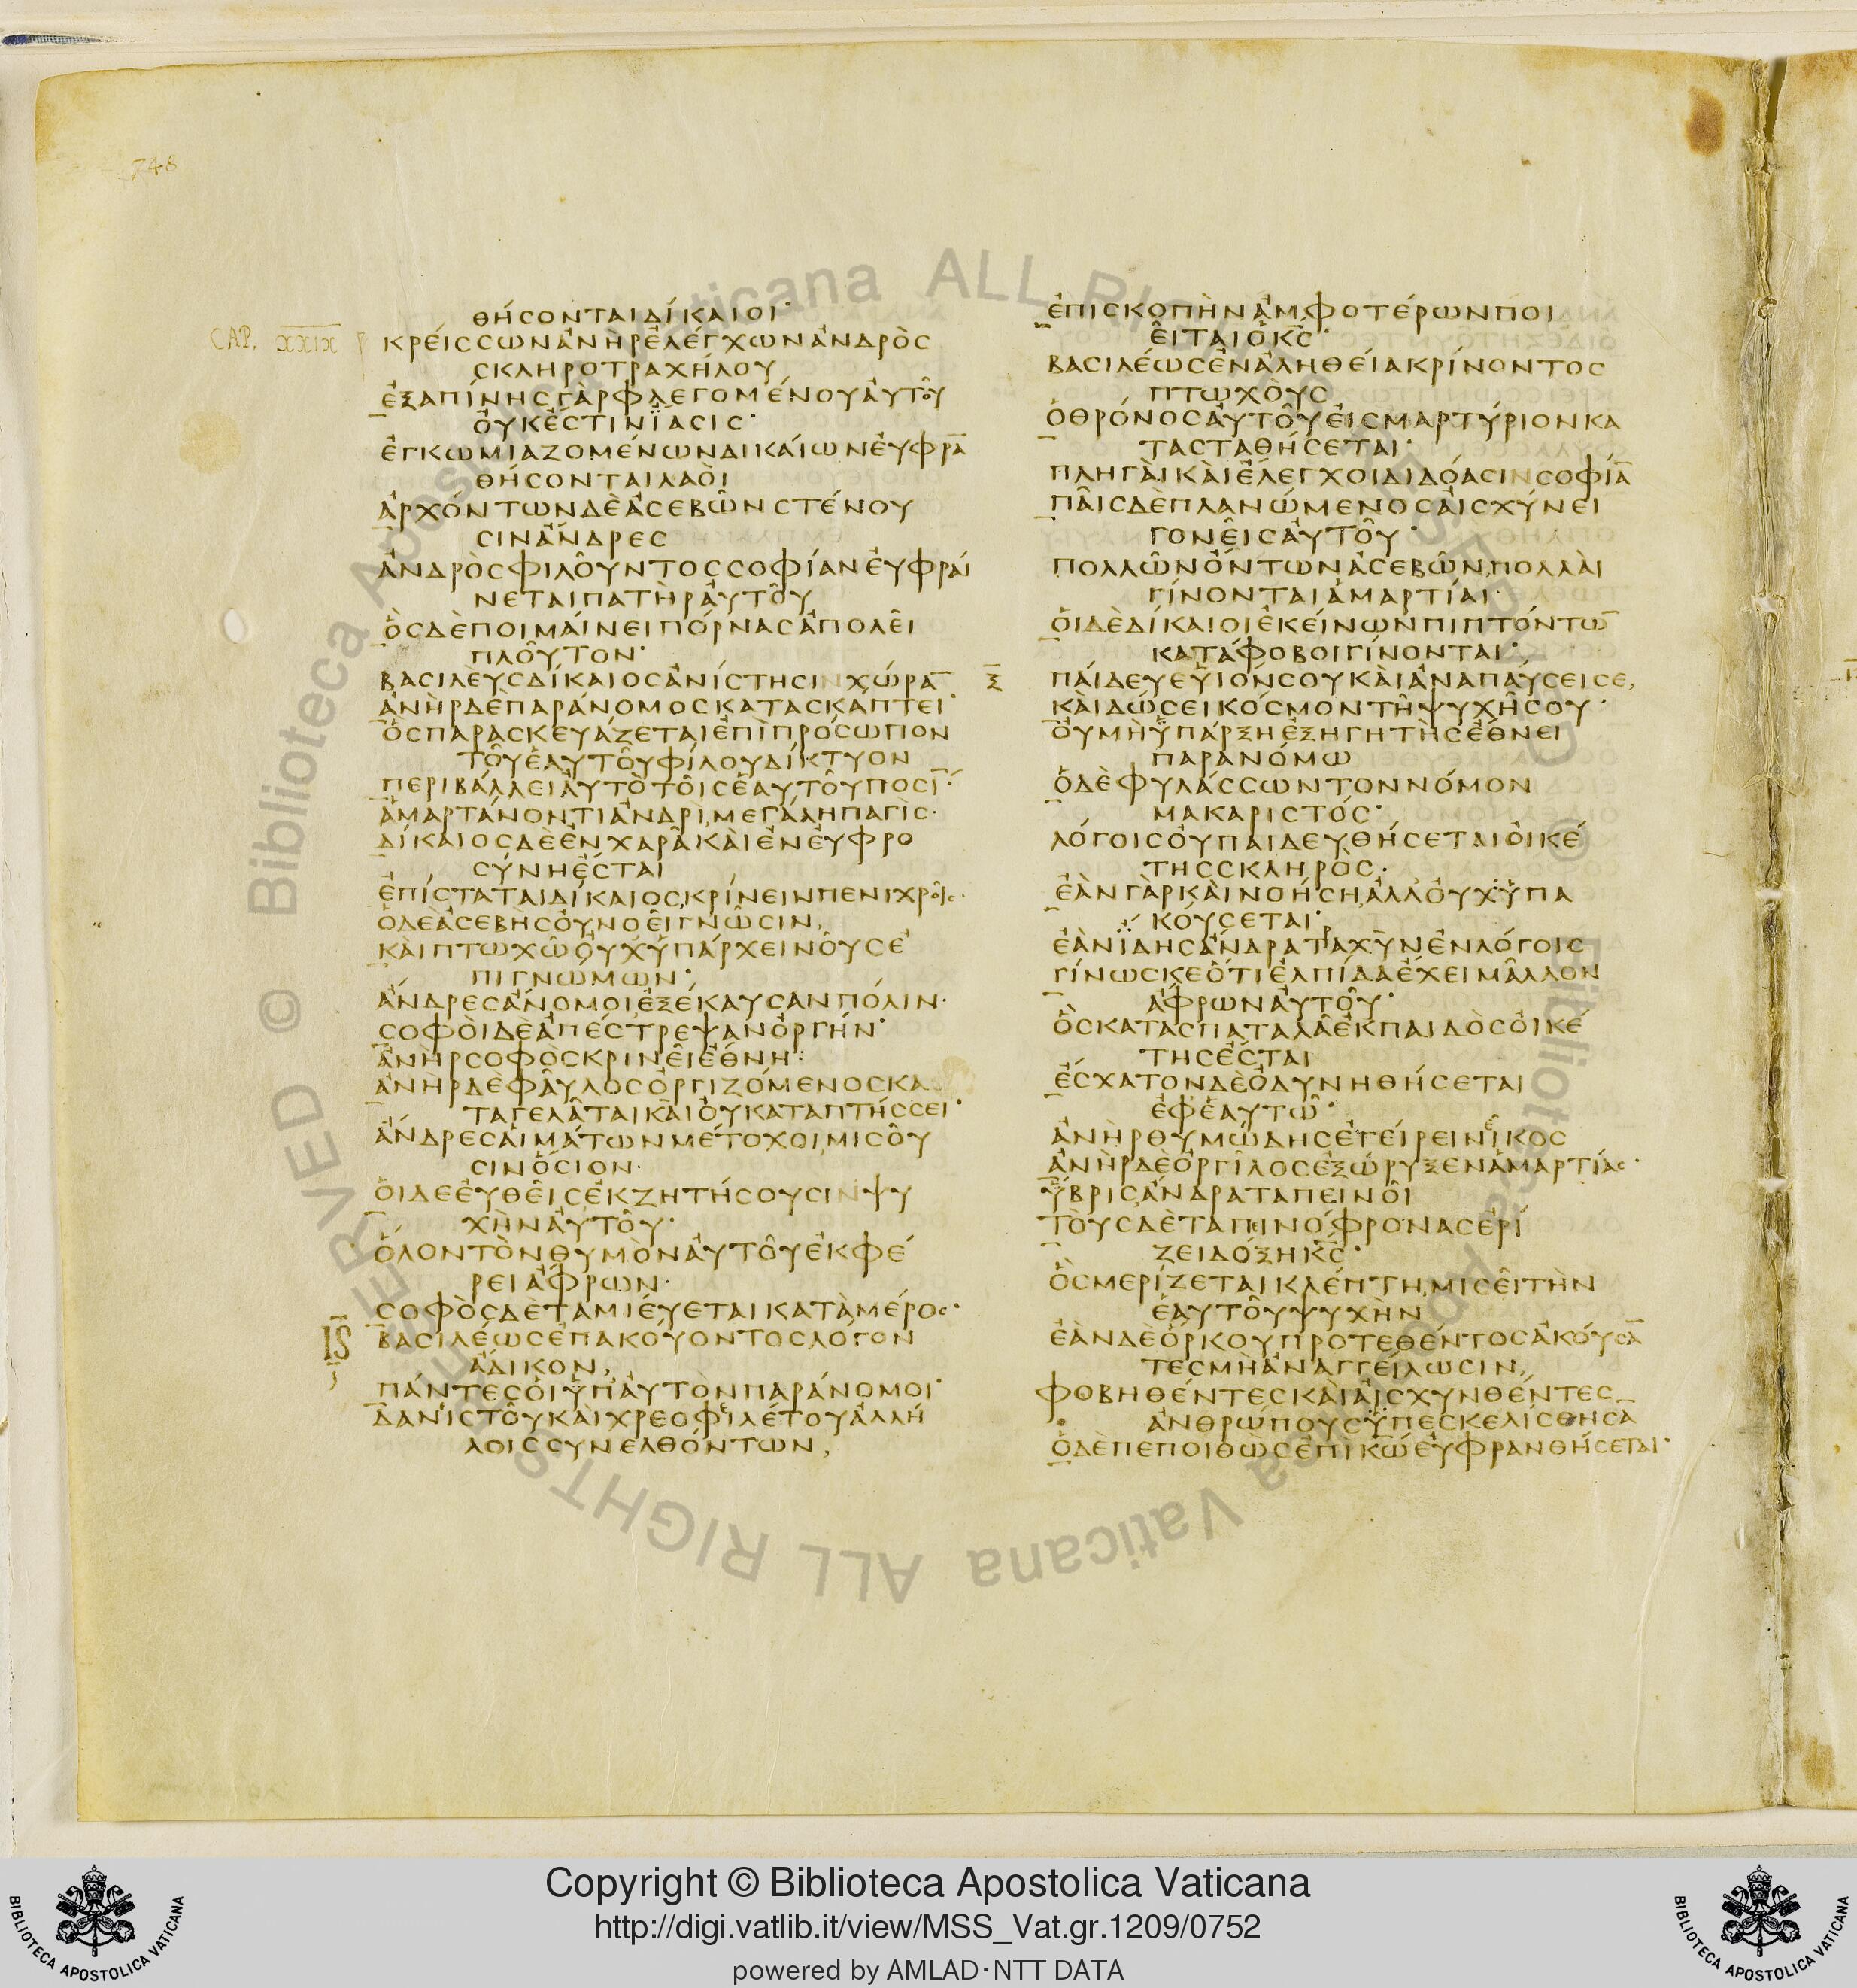 748
θήσονται δίκαιοι·
CAP. XXIX κρείσσων ἀνὴρ ἐλέγχων ἀνδρὸς
σκληροτραχήλου
ἐξαπίνης γὰρ φλεγομένου ἀυτοῦ
ὀυκ ἔστιν ἴασις·
ἐγκωμιαζομένων δικάιων ἐυφρα̅
θήσονται λαὸι
ἀρχόντων δὲ ἀσεβῶν στένου
σιν ἄνδρες
ἀνδρὸς φιλοῦντος σοφίαν ἐυφράι
νεται πατὴρ ἀυτοῦ
ὃς δὲ ποιμάινει πόρνας ἀπολεῖ
πλοῦτον·
βασιλεὺς δίκαιος ἀνίστησιν χώρα̅
ἀνὴρ δὲ παράνομος κατασκάπτει·
ὃς παρασκευάζεται ἐπὶ πρόσωπον
τοῦ ἑαυτοῦ φίλου δίκτυον
περιβάλλει ἀυτὸ τοῖς ἑαυτοῦ ποσι̅·
ἁμαρτάνοντι ἀνδρὶ, μεγάλη παγὶς·
δίκαιος δὲ ἐν χαρᾶ κὰι ἐν ἐυφρο
σύνη ἔσται
ἐπίσταται δίκαιος, κρίνειν πενιχροῖς·
ὁ δὲ ἀσεβὴς ὀυ νοεῖ γνῶσιν,
κὰι πτωχῶ ὀυχ ὑπάρχει νοῦς ἐ
πιγνώμων·
ἄνδρες ἄνομοι ἐξέκαυσαν πόλιν·
σοφὸι δὲ ἀπέστρεψαν ὀργήν·
ἀνὴρ σοφὸς κρινεῖ ἔθνη:
ἀνὴρ δὲ φᾶυλος ὀργιζόμενος κα
ταγελᾶται κὰι ὀυ καταπτήσσει·
ἄνδρες ἁιμάτων μέτοχοι, μισοῦ
σιν ὅσιον·
ὁι δὲ ἐυθεῖς ἐκζητήσουσιν ψυ
χὴν ἀυτοῦ·
ὅλον τὸν θυμὸν ἀυτοῦ ἐκφέ
ρει ἄφρων·
σοφὸς δὲ ταμιέυεται κατὰ μέρος·
ΙϚ βασιλέως ἐπακούοντος λόγον
ἄδικον,
πάντες ὁι ὑπ ἀυτὸν παράνομοι·
δανιστοῦ κὰι χρεοφιλέτου ἀλλή
λοις συνελθόντων,
ἐπισκοπὴν ἀμφοτέρων ποι
εῖται ὁ κ̅ς̅·
βασιλέως ἐν ἀληθέια κρίνοντος
πτωχὸυς
ὁ θρόνος ἀυτοῦ ἐις μαρτύριον κα
τασταθήσεται·
πληγὰι κὰι ἔλεγχοι διδόασιν σοφία̅
πᾶις δὲ πλανώμενος ἀισχύνει
γονεῖς ἀυτοῦ·
πολλῶν ὄντων ἀσεβῶν, πολλὰι
γίνονται ἁμαρτίαι·
ὁι δὲ δίκαιοι ἐκείνων πιπτόντω̅
κατάφοβοι γίνονται·
ξ̅ πάιδευε ὑιόν σου κὰι ἀναπάυσει σε,
κὰι δώσει κόσμον τῆ ψυχῆ σου·
ὀυ μὴ ὑπάρξη ἐξηγητὴς ἔθνει
παρανόμω
ὁ δὲ φυλάσσων τον νόμον
μακαριστός·
λόγοις ὀυ παιδευθήσεται ὀικέ
της σκληρὸς·
ἐὰν γὰρ κὰι νοήση ἀλλ ὀυχ ὑπα
κόυσεται·
ἐὰν ἴδης ἄνδρα ταχὺν ἐν λόγοις
γίνωσκε ὅτι ἐλπίδα ἔχει μᾶλλον
ἄφρων ἀυτοῦ·
ὃς κατασπαταλᾶ ἐκ παιδὸς ὀικέ
της ἔσται
ἔσχατον δὲ ὀδυνηθήσεται
ἐφ ἑαυτῶ·
ἀνὴρ θυμώδης ἐγείρει νεῖκος
ἀνὴρ δὲ ὀργῖλος ἐξώρυξεν ἁμαρτίας·
ὕβρις ἄνδρα ταπεινοῖ
τὸυς δὲ ταπινόφρονας ἐρί
ζει δόξη κ̅ς̅·
ὃς μερίζεται κλέπτη, μισεῖ τὴν
ἑαυτοῦ ψυχὴν
ἐὰν δὲ ὅρκου προτεθέντος ἀκόυσα̅
τες μὴ ἀναγγείλωσιν,
φοβηθέντες κὰι ἀισχυνθέντες
ἀνθρώπους ὑπεσκελίσθησα̅
ὁ δὲ πεποιθὼς ἐπι κ̅ω̅ ἐυφρανθήσεται·
Copyright © Biblioteca Apostolica Vaticana
http://digi.vatlib.it/view/MSS_Vat.gr.1209/0752
powered by AMLAD·NTT DATA
BIBLIOTECA APOSTOLICA VATICANA
BIBLIOTECA APOSTOLICA VATICANA
© Biblioteca Apostolica Vaticana ALL RIGHTS RESERVED © Biblioteca Apostolica Vaticana ALL RIGHTS RESERVED